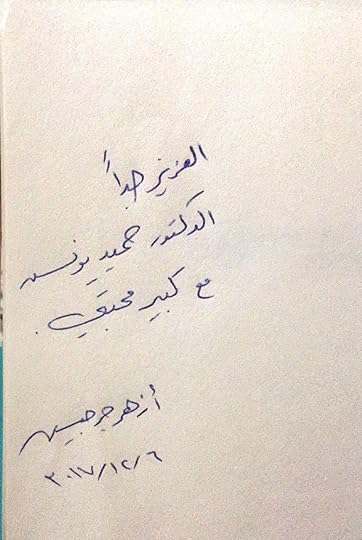 العزيز جداً
الدكتور حميد يونس
مع كبير محبتي.
أزهر جرجيس
٢٠١٧/١٢/٦